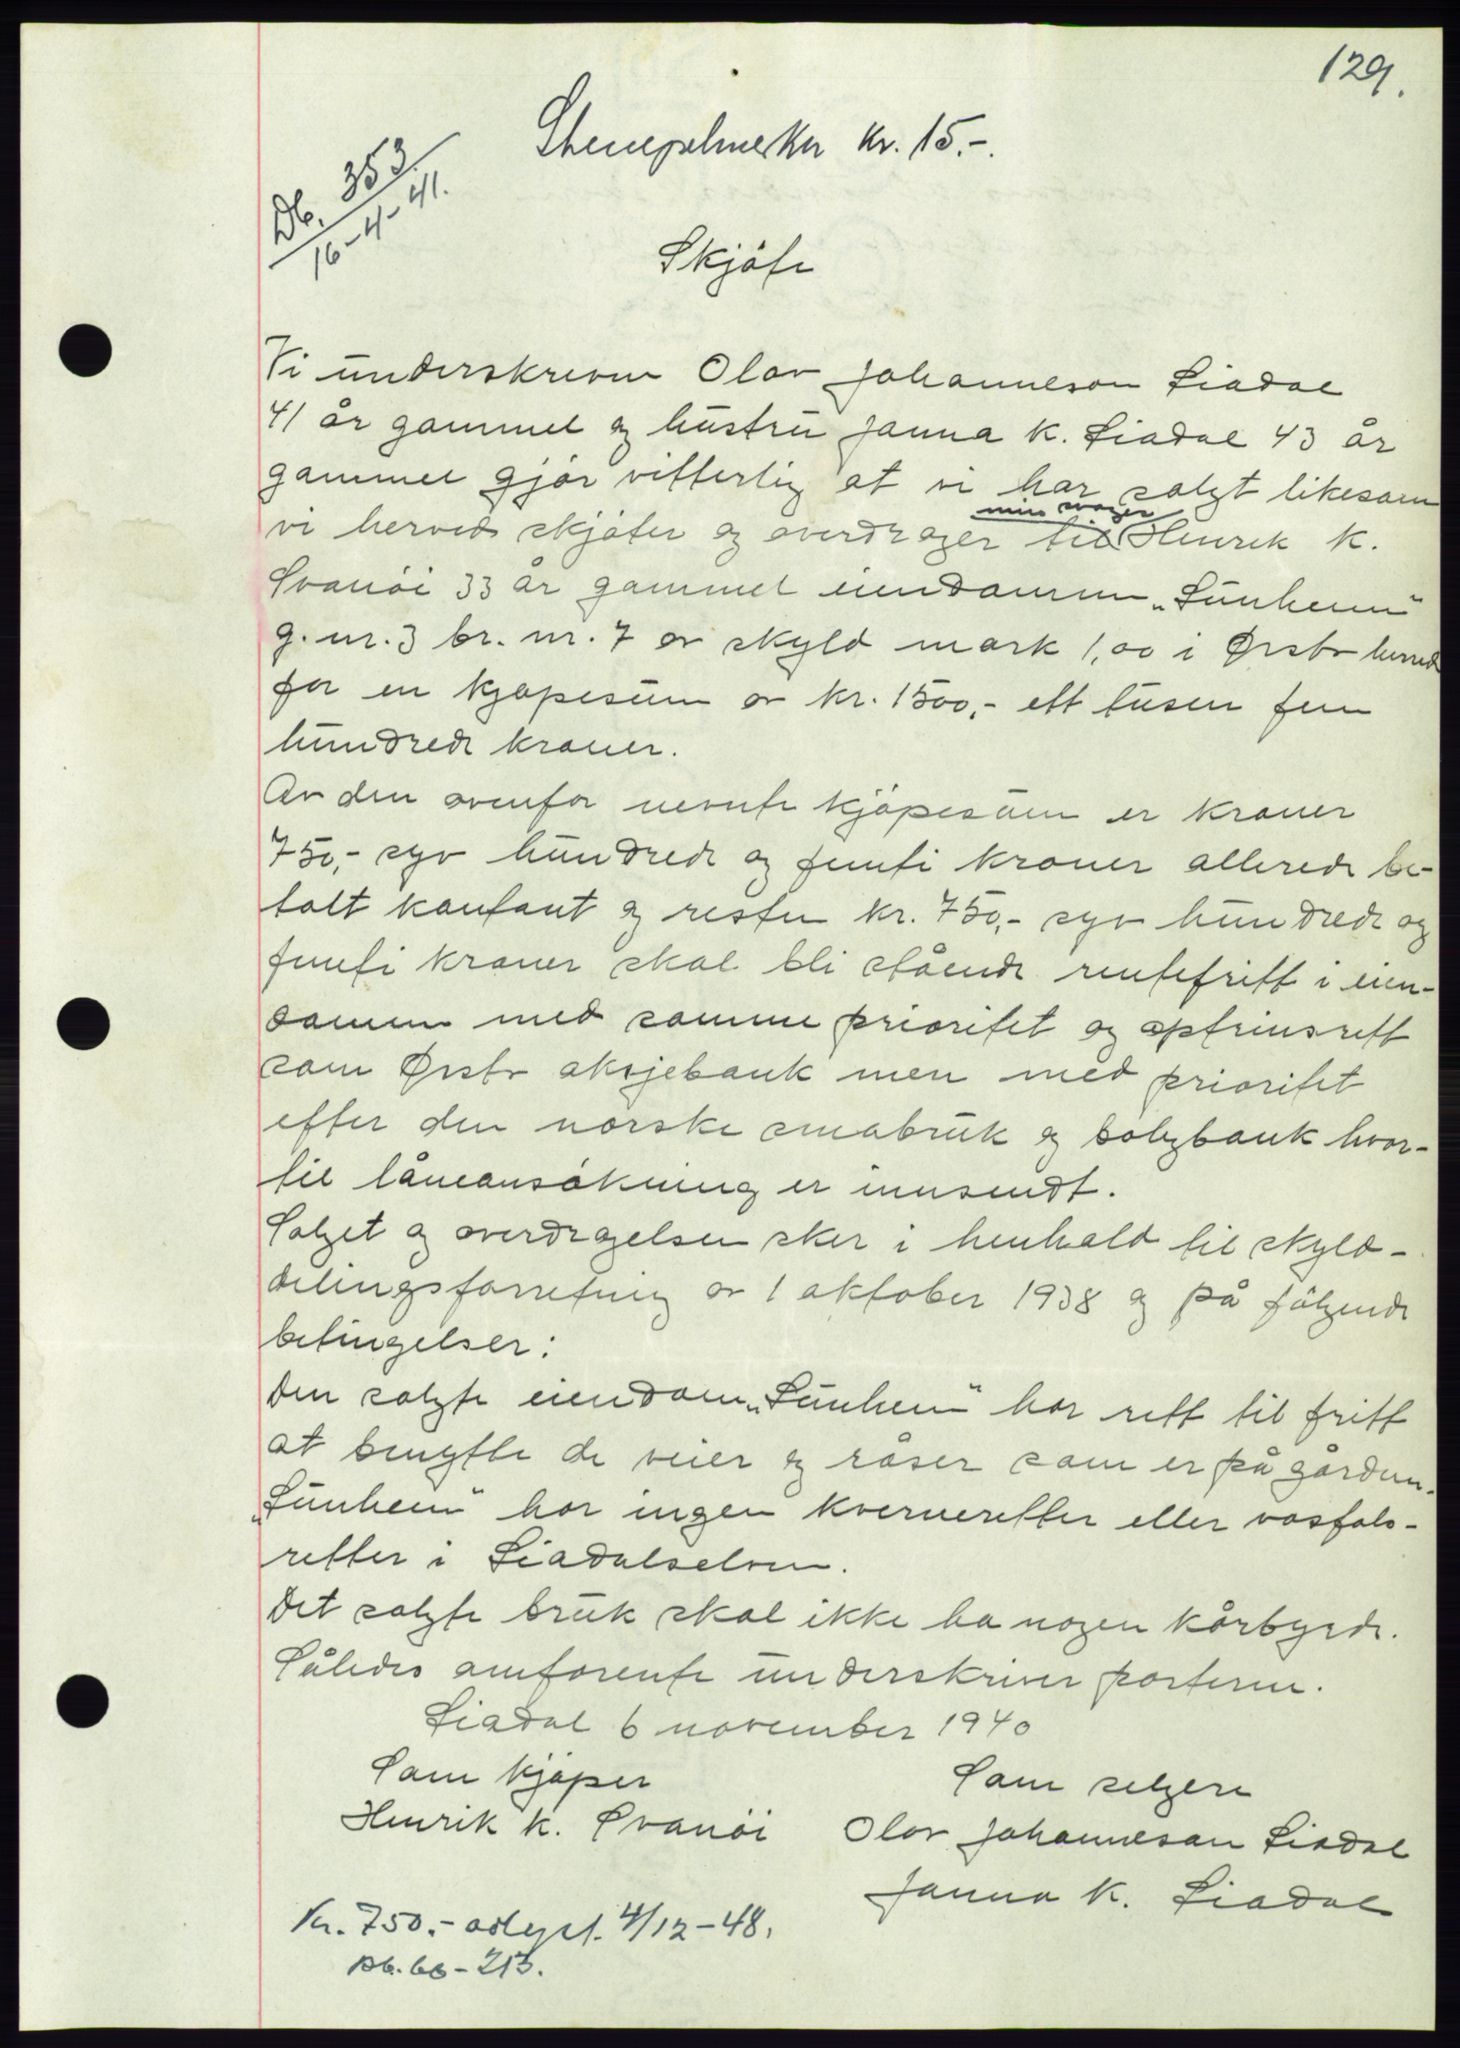 129.
Stempelmerker kr. 15.-.
Db. 353
16-4-41.
Skjöte
Vi underskrevne Olav Johanneson Liadal
41 år gammel og hustru Janna K. Liadal 43 år
gammel gjör vitterlig at vi har solgt likesom
min svoger
vi herved skjöter og overdrager til Henrik K.
Svanöi 33 år gammel eiendommen „Sunheim"
g. nr. 3 br. nr. 7 av skyld mark 1,00 i Ørsta herred
for en kjöpesum av kr. 1500,- ett tusen fem
hundrede kroner.
Av den ovenfor nevnte kjöpesum er kroner
750,- syv hundrede og femti kroner allerede be-
talt kontant og resten kr. 750,- syv hundrede og
femti kroner skal bli stående rentefritt i eien-
dommen med samme prioritet og optrinsrett
som Ørsta aksjebank men med prioritet
efter den norske småbruk og boligbank hvor-
til låneansökning er innsendt.
Salget og overdragelsen sker i henhold til skyld-
delingsforretning av 1 oktober 1938 og på fölgende
betingelser:
Den solgte eiendom „Sunheim" har rett til fritt
at benytte de veier og råser som er på gården.
„Sunheim" har ingen kverneretter eller vasfals-
retter i Liadalselven.
Det solgte bruk skal ikke ha nogen kårbyrde.
Således omforente underskriver parterne.
Liadal 6 november 1940
Som kjöper
Som selgere
Henrik K. Svanöi
Olav Johanneson Liadal
Janna K. Liadal
Kr. 750.- avlyst. 4/12-48.
Pb. 66-213.